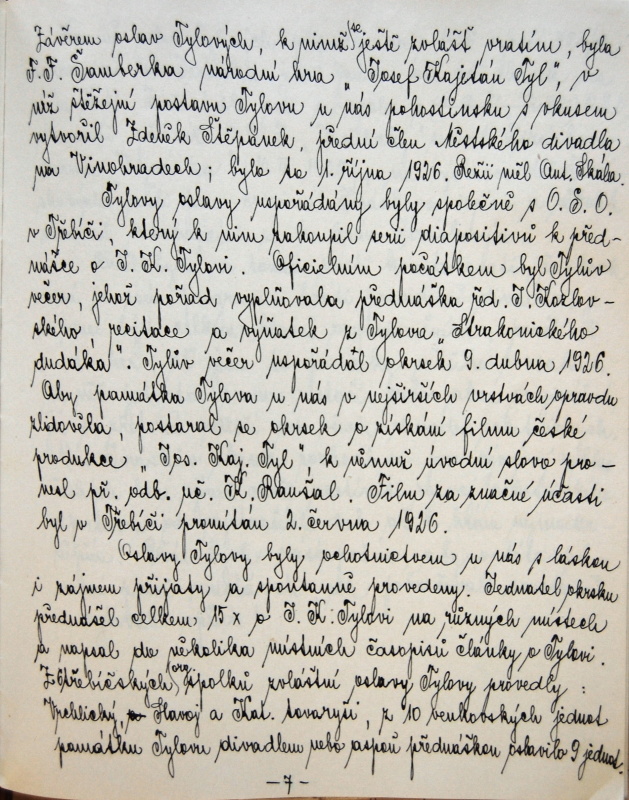 Závěrem oslav Tylových, k nimž se ještě zvlášť vrátím, byla
F. F. Šamberka národní hra "Josef Kajetán Tyl", v
níž stěžejní postavu Tylovu u nás pohostinsku s vkusem
vytvořil Zdeněk Štěpánek, přední člen Městského divadla
na Vinohradech; bylo to 1. října 1926. Režii měl Ant. Skála.
Tylovy oslavy uspořádány byly společně s O. S. O.
v Třebíči, který k nim zakoupil serii diapositivů k před-
nášce o J. K. Tylovi. Oficielním počátkem byl Tylův
večer, jehož pořad vyplňovala přednáška řed. J. Kozlov-
ského, recitace a výňatek z Tylova "Strakonického
dudáka". Tylův večer uspořádál okrsek 9. dubna 1926.
Aby památka Tylova u nás v nejširších vrstvách opravdu
zlidověla, postaral se okrsek o získání filmu české
produkce "Jos. Kaj. Tyl", k němuž úvodní slovo pro-
nesl př. odb. uč. K. Raušal Film za značné účasti
byl v Třebíči promítán 2. června 1926.
Oslavy Tylovy byly ochotnictvem u nás s láskou
i zájmem přijaty a spontanně provedeny. Jednatel okrsku
přednášel celkem 15 x o J. K. Tylovi na různých místech
a napsal do několika místních časopisů články o Tylovi.
Z třebíčských org. spolků zvláštní oslavy Tylovy provedly:
Vrchlický, Slavoj a Kat. tovaryši, z 10 venkovských jednot
památku Tylovu divadlem nebo aspoň přednáškou oslavilo 9 jednot.
-7-